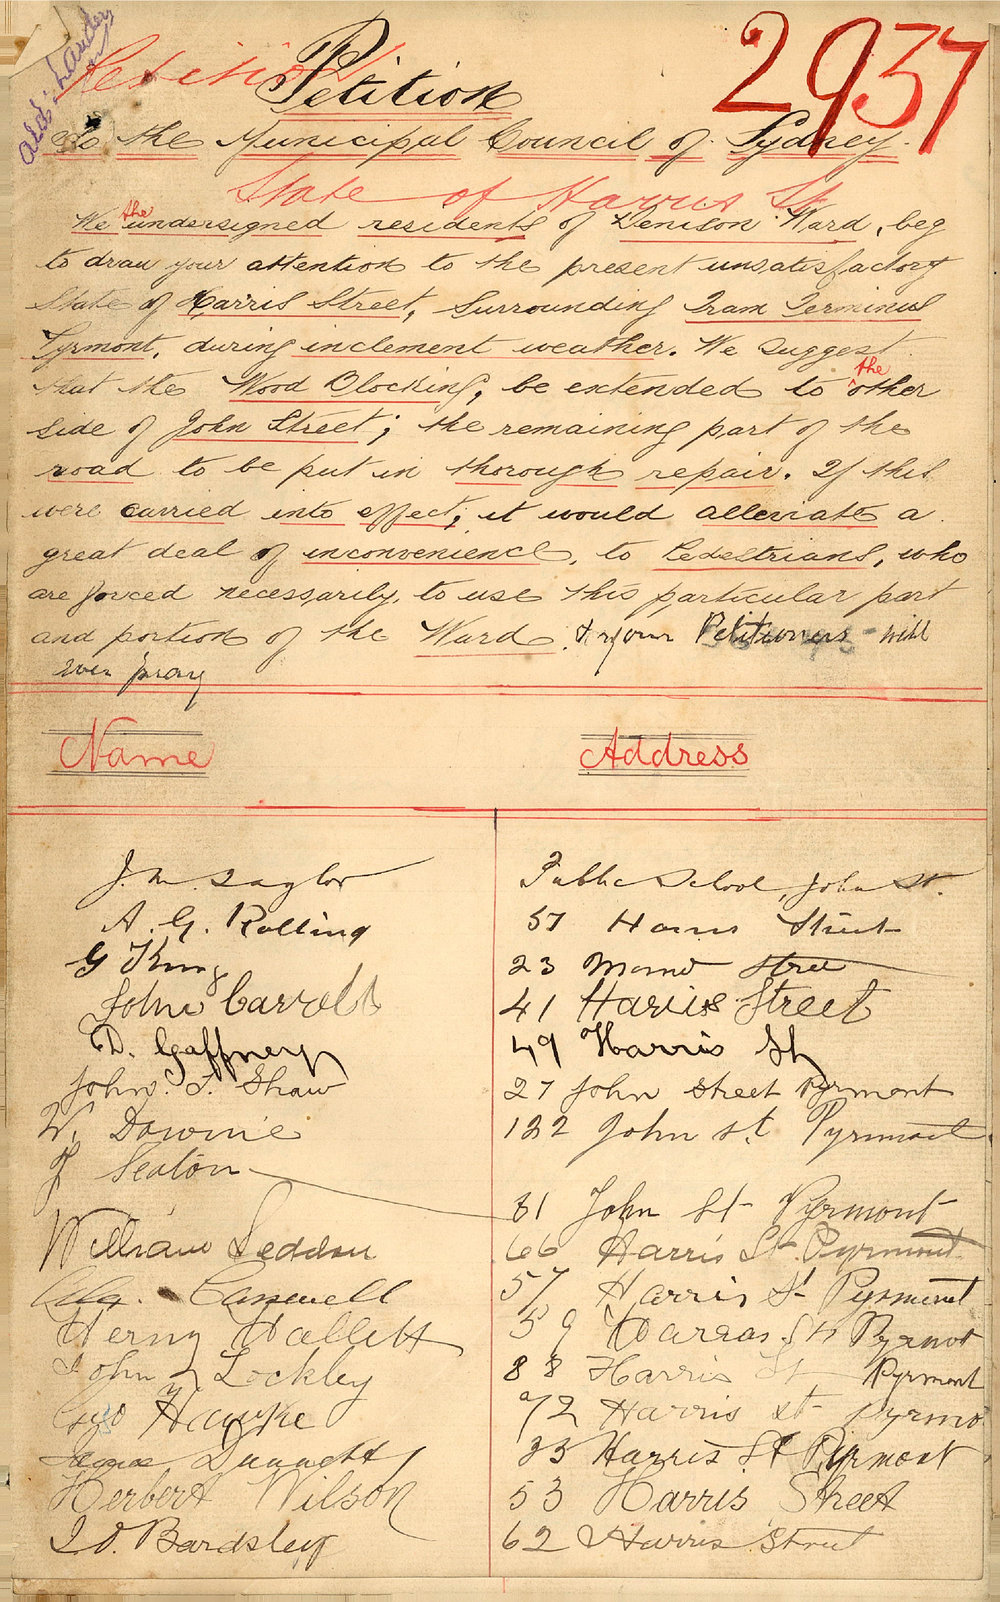 Ald: Lander
Petition
2937
Petition
To the Municipal Council of Sydney.
State of Harris St
We the undersigned residents of Denison Ward, beg
to draw your attention to the present unsatisfactory
State of Harris Street, Surrounding Tram Terminus
Pyrmont, during inclement weather. We suggest
that the Wood Blocking, be extended to the other
side of John Street; the remaining part of the
road to be put in thorough repair. If this
were carried into effect; it would alleviate a
great deal of inconvenience, to Pedestrians, who
are forced necessarily, to use this particular part
and portion of the Ward. & your Petitioners will
ever pray
Name Address
J. M. Taylor Public School, John St.
A. G. Rolling 57 Harris Street
G King 23 Street
John Carroll 41 Harris Street
D. Gaffney 49 Harris St
John. T. Shaw 27 John Street Pyrmont
W. Downie 122 John St Pyrmont
J Seaton 81 John St Pyrmont
William Seddon 66 Harris St Pyrmont
Carswell 57 Harris St Pyrmont
Herny Hallett 59 Harras St Pyrmot
John J Lockley 88 Harris St Pyrmont
Geo Hawke 72 Harris St Pyrmo
James Dunnett 33 Harris St Pyrmont
Herbert Wilson 53 Harris Street
J. O. Bardsley 62 Harris Street